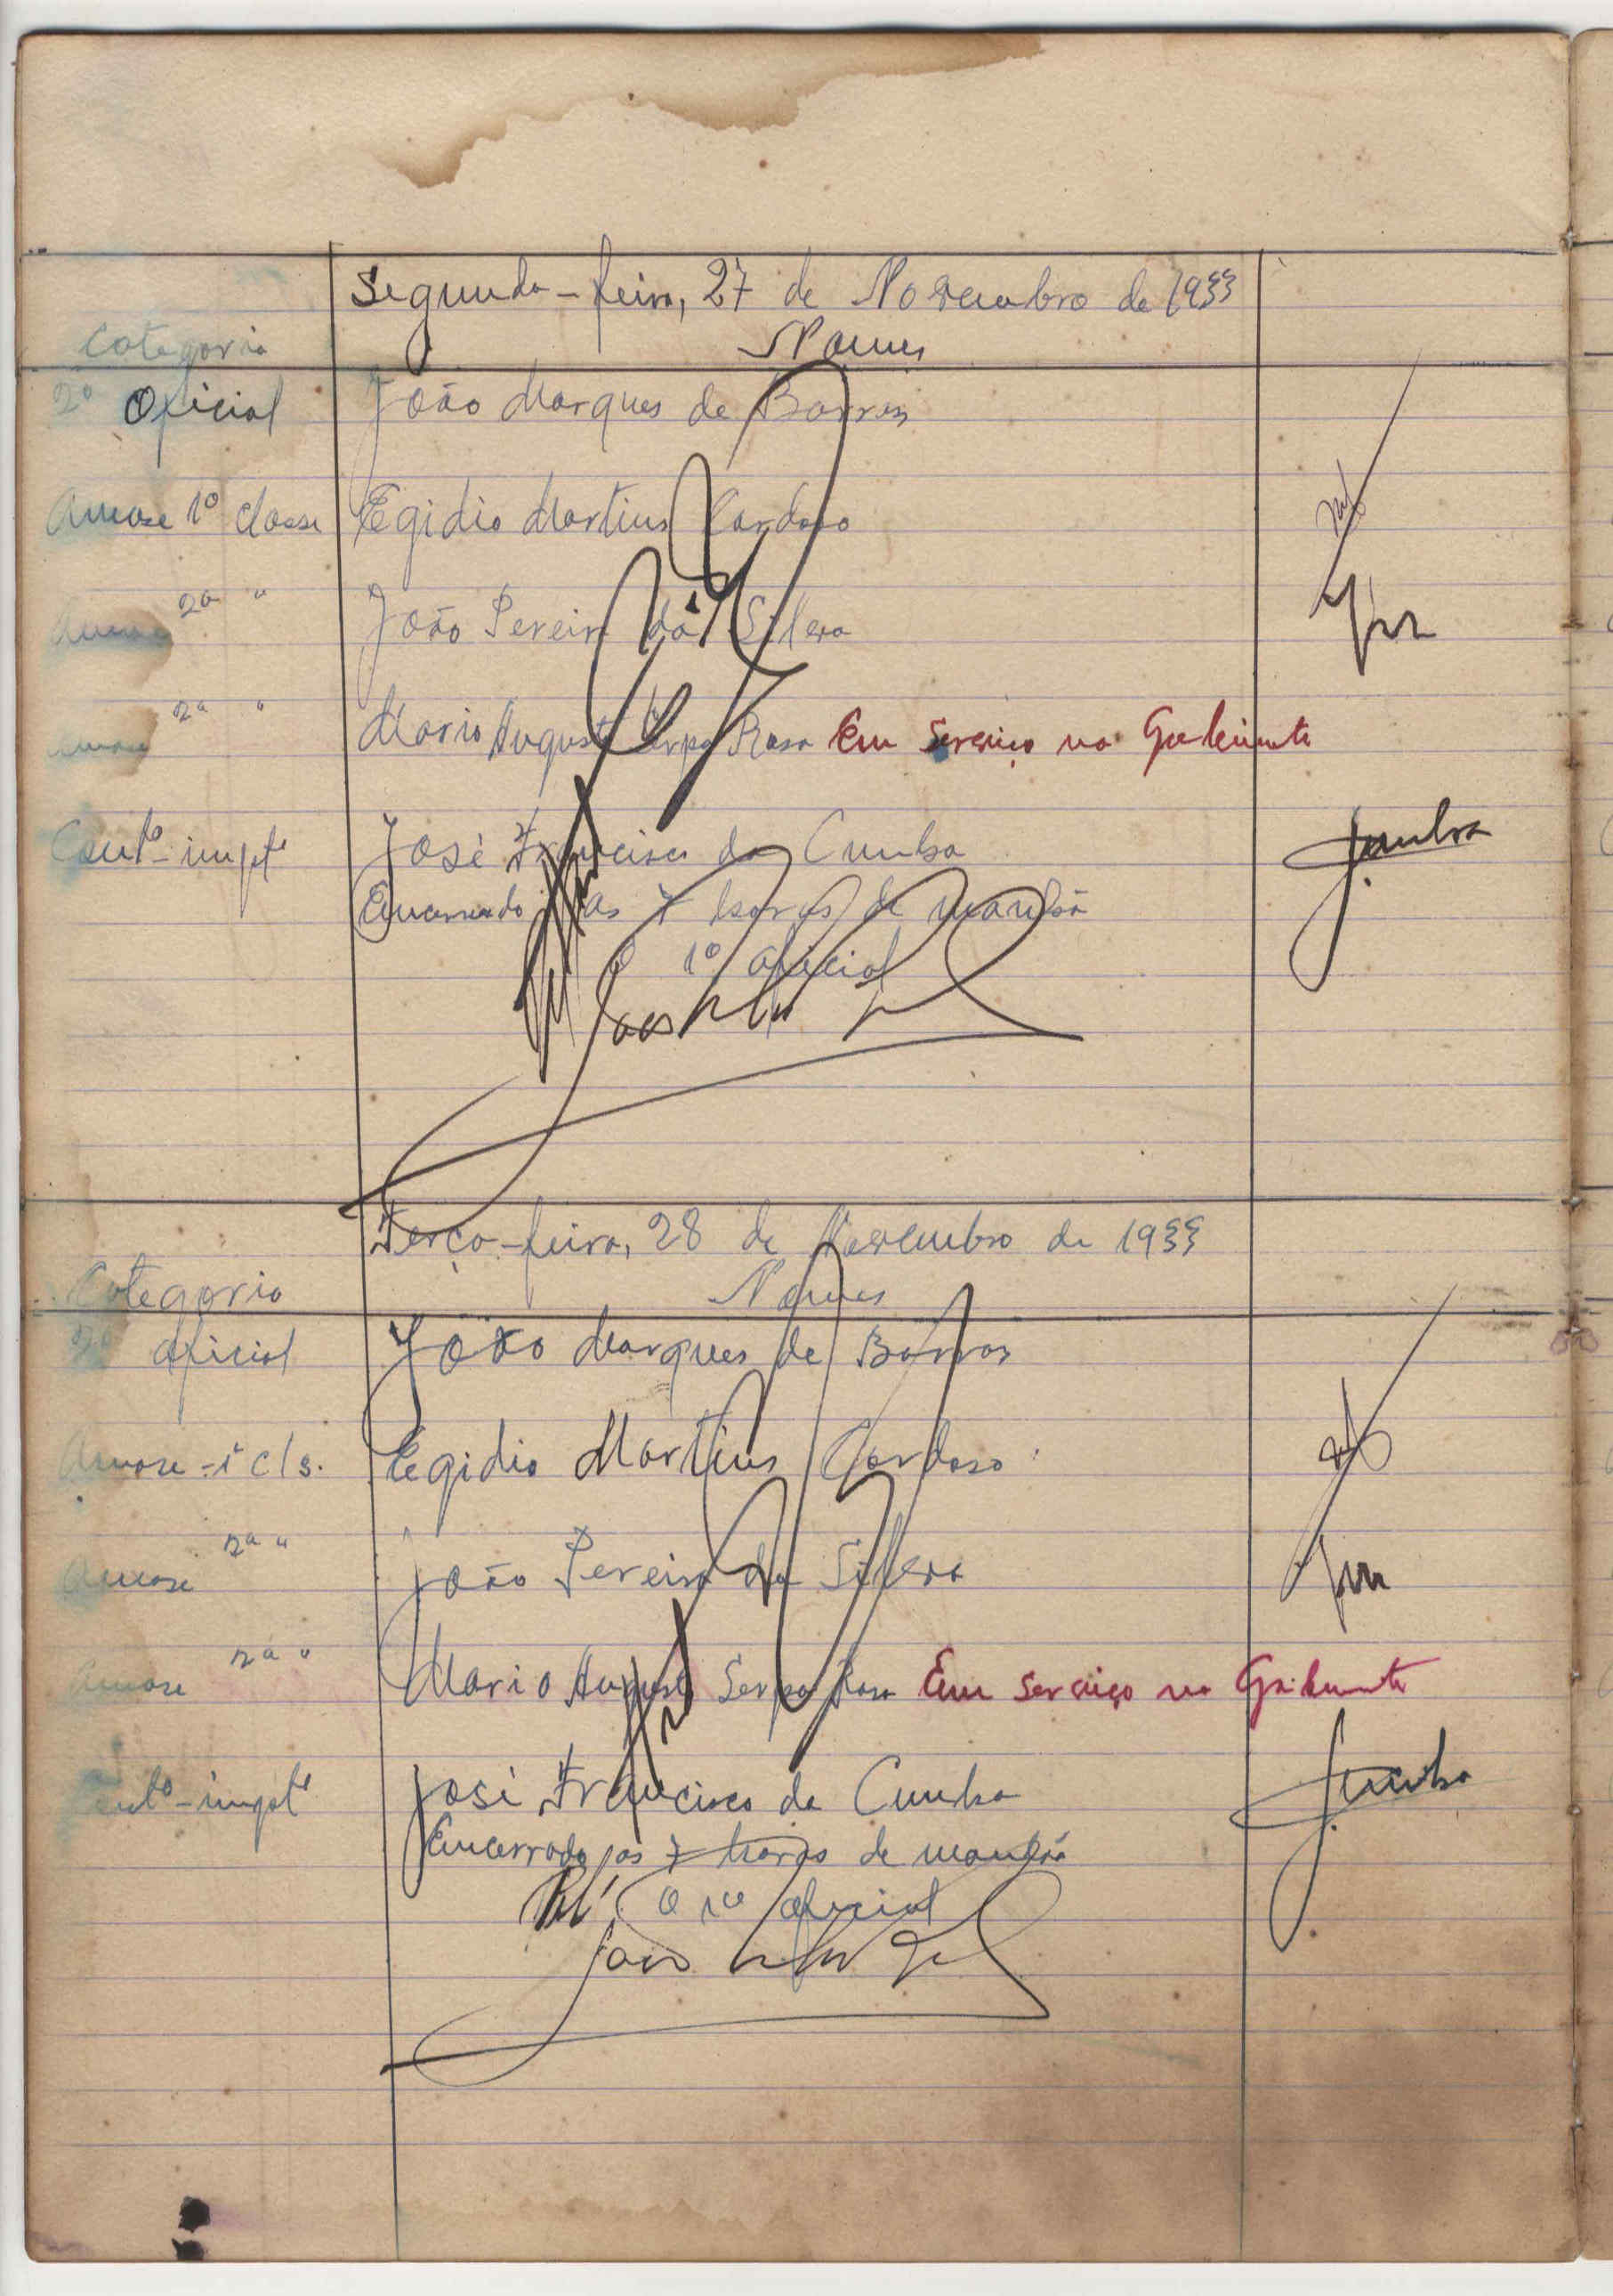 Segunda-feira, 27 de Novembro de 1933
Categoria Nomes
2º Oficial João Marques de Barros
Amase 1ª classe Egidio Martins Cardoso
Amase 2ª " João Pereira da Silva
Amase 2ª " Mario Augusto Serpa Rosa Em serviço no Gabinete
Contº-impte José Francisco da Cunha Cunha
Encerrado, ás 7 horas de manhã
O 1º oficial
Terça-feira, 28 de Novembro de 1933
Categoria Nomes
2º oficial João Marques de Barros
Amase-1ª cls. Egidio Martins Cardoso
Amase 2ª " João Pereira da Silva
Amase 2ª " Mario Augusto Serpa Rosa Em serviço no Gabinete
Contº-impte José Francisco da Cunha Cunha
Encerrado, ás 7 horas de manhã
O 1º oficial